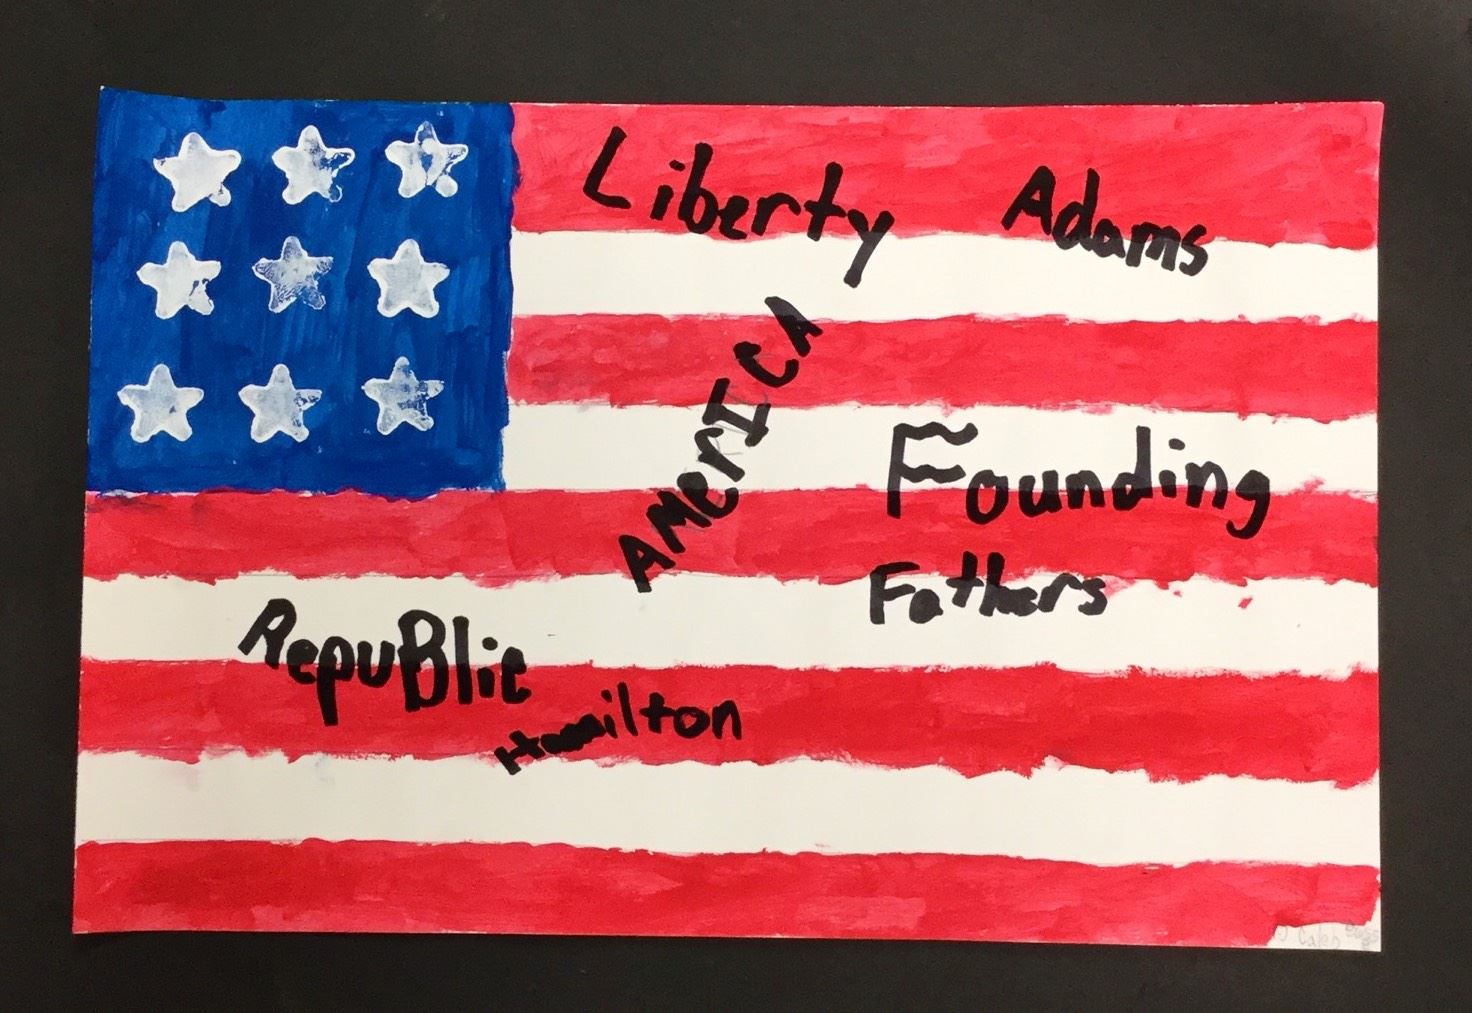 Liberty Adams
AMerICA
Founding
Fathers
RepuBlic
Hamilton
Caleb